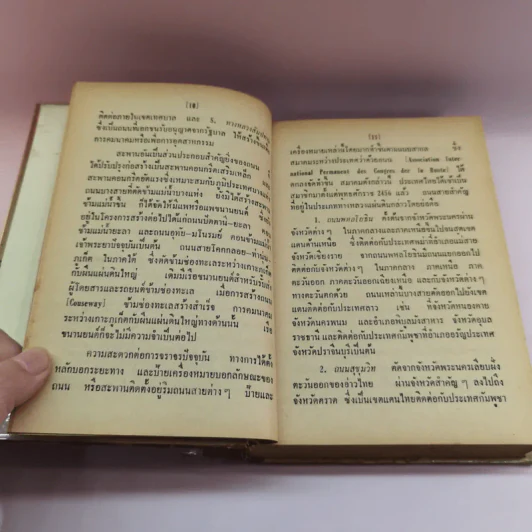 [10]
ติดต่อภายในเขตเทศบาล และ 5. ทางหลวงสัมปทาน
ซึ่งเป็นถนนที่เอกชนรับอนุญาตจากรัฐบาล ให้สร้างขึ้นเพื่อ
การคมนาคมหรือเพื่อการอุตสาหกรรม
สะพานอันเป็นส่วนประกอบสำคัญยิ่งของถนน
ได้ปรับปรุงก่อสร้างเป็นสะพานคอนกรีตเสริมเหล็ก
สะพานคอนกรีตอัดแรงซึ่งเหมาะสมกับภูมิประเทศ
ถนนบางสายที่ตัดข้ามแม่น้ำบางแห่ง ยังมิได้สร้างสะพาน
ข้ามแม่น้ำขึ้น ก็ได้จัดให้มีแพหรือแพขนานยนต์ ซึ่ง
อยู่ในโครงการสร้างต่อไปได้แก่ถนนปัตตานี-ยะลา ตอน
ข้ามแม่น้ำยะลา และถนนอุทัย-มโนรมย์ ตอนข้ามแม่น้ำ
เจ้าพระยาปัจจุบันเป็นต้น ถนนสายโคกกลอย-ท่านุ่น-
ภูเก็ต ในภาคใต้ ซึ่งตัดข้ามช่องทะเลระหว่างเกาะภูเก็ต
กับผืนแผ่นดินใหญ่ เดิมมีเรือขนานยนต์สำหรับรับส่ง
ผู้โดยสารและรถยนต์ข้ามช่องทะเล เมื่อการสร้างถนน
[Causeway] ข้ามช่องทะเลสร้างสำเร็จ การคมนาคม
ระหว่างเกาะภูเก็ตกับผืนแผ่นดินใหญ่ทางด้านนั้น เรือ
ขนานยนต์ก็จะไม่มีความจำเป็นต่อไป
ความสะดวกต่อการจราจรปัจจุบัน ทางการได้ตั้ง
หลักบอกระยะทาง และป้ายเครื่องหมายบอกลักษณะของ
ถนน หรือสะพานติดตั้งอยู่ริมถนนสายต่าง ๆ ป้ายและ
[11]
เครื่องหมายเหล่านี้โดยมากเข้าชื่อตามแบบสากล ซึ่ง
สมาคมระหว่างประเทศว่าด้วยถนน [Association Inter-
national Permanent des Congres des la Route] ได้
ตกลงจัดทำขึ้น สมาคมดังกล่าวนี้ ประเทศไทยได้เข้าเป็น
สมาชิกมาตั้งแต่พุทธศักราช 2456 แล้ว ถนนสายสำคัญ
ที่อยู่ในประเภททางหลวงแผ่นดินมีถนนโดยย่อคือ
1. ถนนพหลโยธิน ตั้งต้นจากจังหวัดพระนครผ่าน
จังหวัดต่าง ๆ ในภาคกลางและภาคเหนือขึ้นไปจนสุดเขต
แดนด้านเหนือ ซึ่งติดต่อกับประเทศพม่าที่อำเภอแม่สาย
จังหวัดเชียงราย จากถนนพหลโยธินมีถนนแยกออกไป
ติดต่อกับจังหวัดต่าง ๆ ในภาคกลาง ภาคเหนือ ภาค
ตะวันออก ภาคตะวันออกเฉียงเหนือ และกับจังหวัดต่าง ๆ
ทางตะวันตกด้วย ถนนเหล่านี้บางสายตัดออกไปยังเขต
แดนติดต่อกับประเทศลาว เช่น ที่จังหวัดหนองคาย
จังหวัดนครพนม และอำเภอพิบูลมังสาหาร จังหวัดอุบล
ราชธานี และติดต่อกับประเทศกัมพูชาที่อำเภออรัญประเทศ
จังหวัดปราจีนบุรีเป็นต้น
2. ถนนสุขุมวิท ตัดจากจังหวัดพระนครเลียบฝั่ง
ตะวันออกของอ่าวไทย ผ่านจังหวัดสำคัญ ๆ ลงไปถึง
จังหวัดตราด ซึ่งเป็นเขตแดนไทยติดต่อกับประเทศกัมพูชา